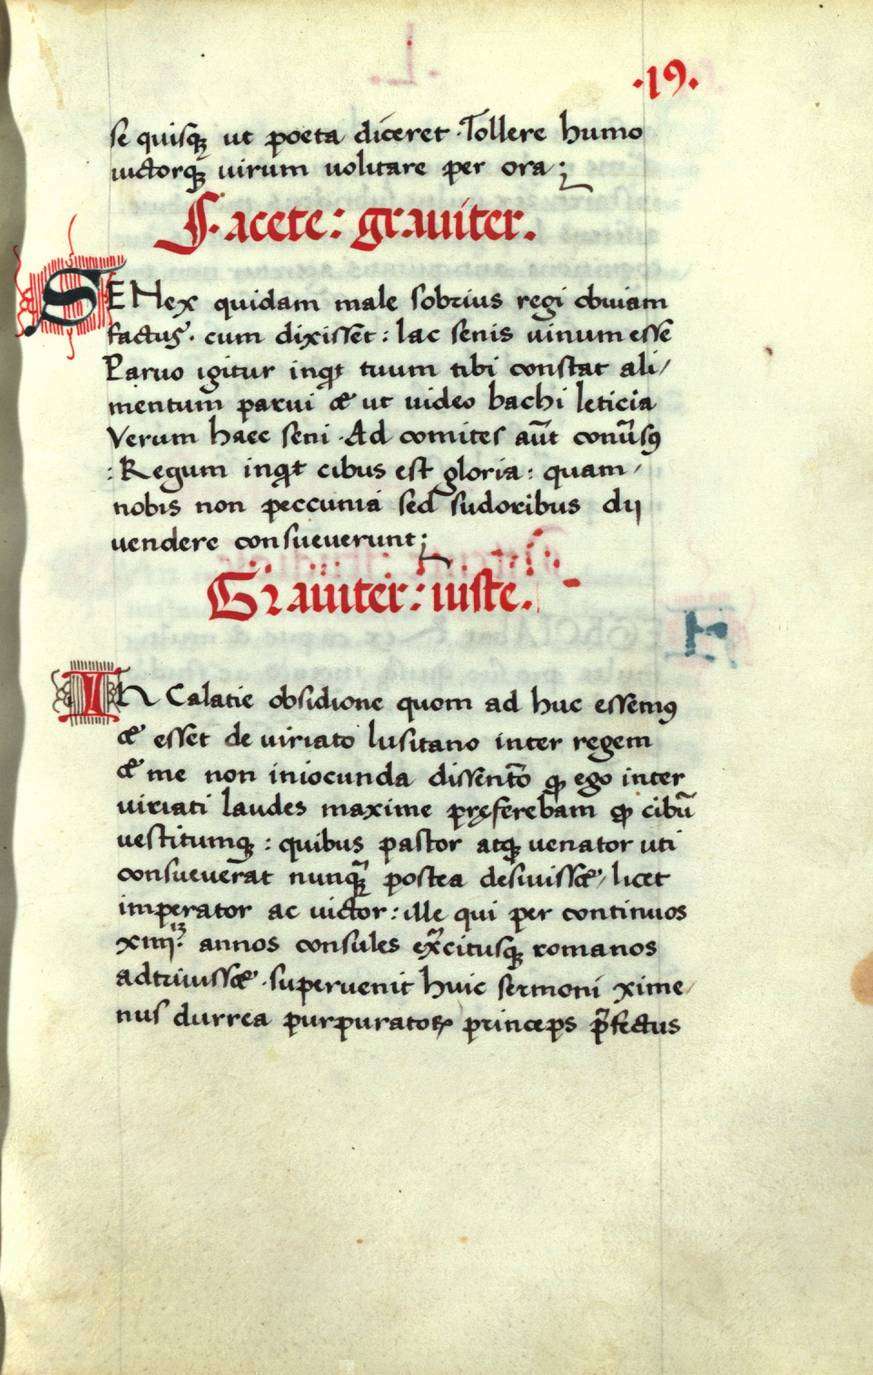 .19.
se quisqꝫ ut poeta diceret .Tollere humo
uictorqꝫ uirum uolitare per ora;
Facete: grauiter.
SENex quidam male sobrius regi obuiam
factus. cum dixisset: lac senis uinum esse
Paruo igitur inqt tuum tibi constat ali/
mentum parui & ut uideo bachi leticia
Verum haec seni .Ad comites aūt conūsꝰ
:Regum inqt cibus est gloria: quam/
nobis non peccunia sed sudoribus dij
uendere consueuerunt;
Grauiter: iuste.
IN Calatie obsidione quom ad huc essemꝰ
& esset de uiriato lusitano inter regem
& me non iniocunda dissentō ꝙ ego inter
uiriati laudes maxime pręferebam ꝙ cibū
uestitumqꝫ: quibus pastor atqꝫ uenator uti
consueuerat nunqꝫ̄ postea desiuiss&/ licet
imperator ac uictor: ille qui per continuos
annos consules romanos
adtriuiss& .superuenit huic sermoni xime/
nus durrea purpuratoꝝ princeps p̄fectus